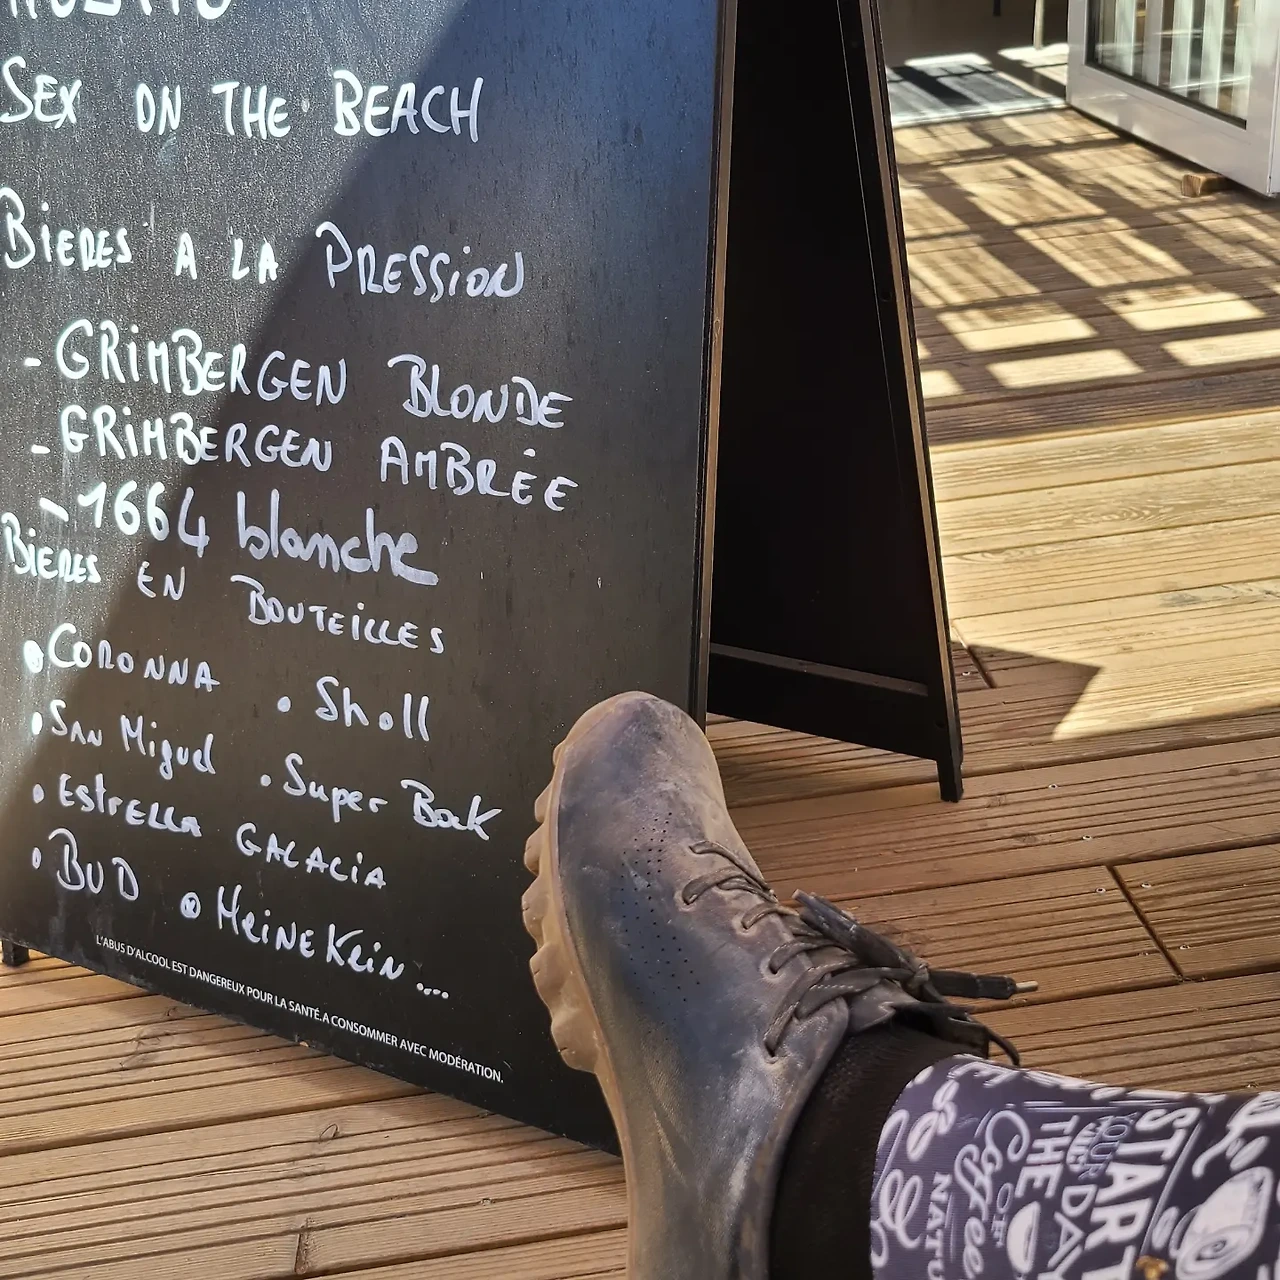 SEX ON THE BEACH
BiERES A LA PRESSioN
- GRiMBERGEN BLONDE
- GRiMBERGEN AMBRÉE
- 1664 blanche
BiERES EN BOUTEiLLES
• CORONNA
• Sholl
• SAN Miguel
• Super Bock
• EstrELLA GALACiA
• BUD • HEiNEKEin ....
L'ABUS D'ALCOOL EST DANGEREUX POUR LA SANTÉ.A CONSOMMER AVEC MODÉRATION.
START
YOUR
THE DAY
Coffee
OF
NATU